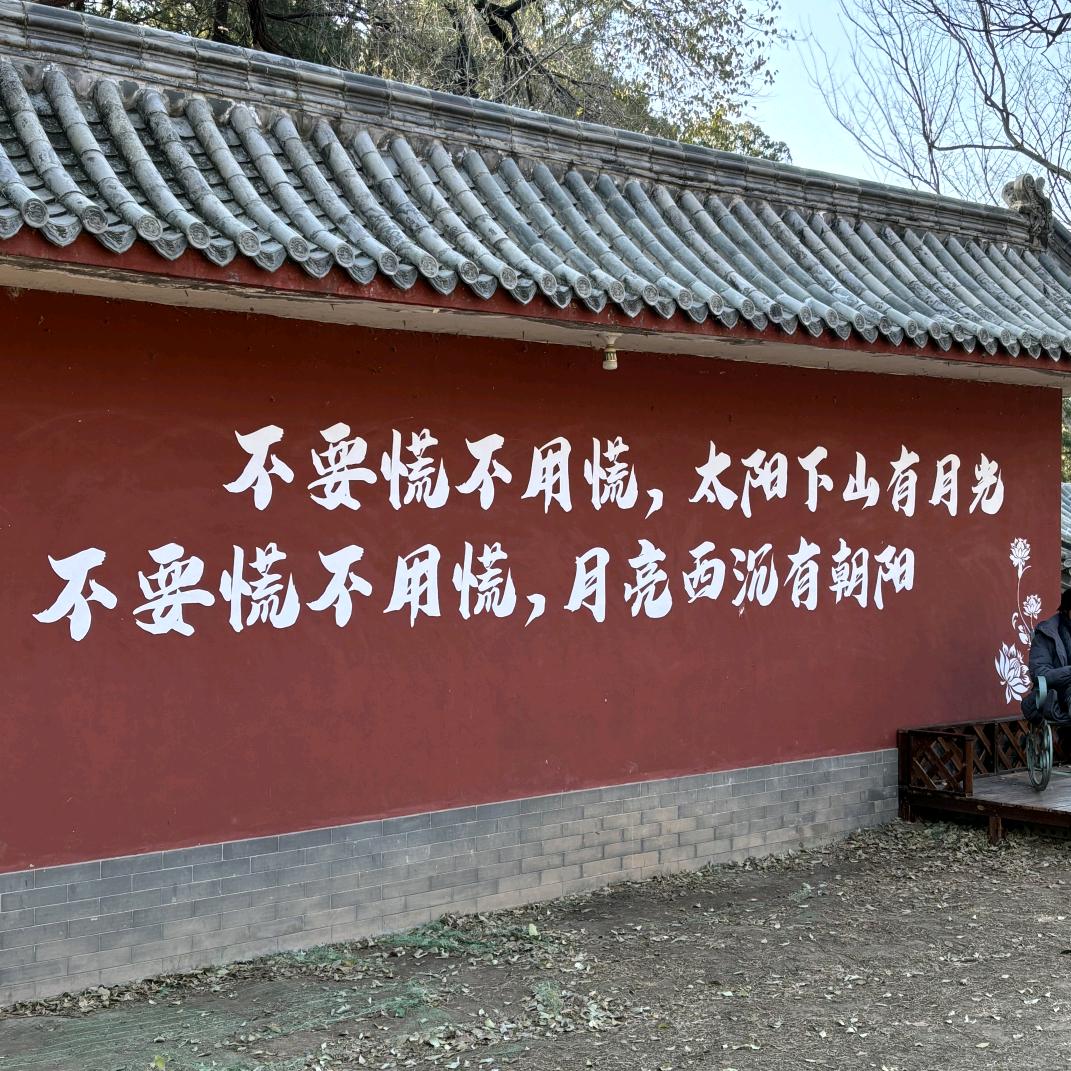 不要慌不用慌，太阳下山有月光
不要慌不用慌，月亮西沉有朝阳